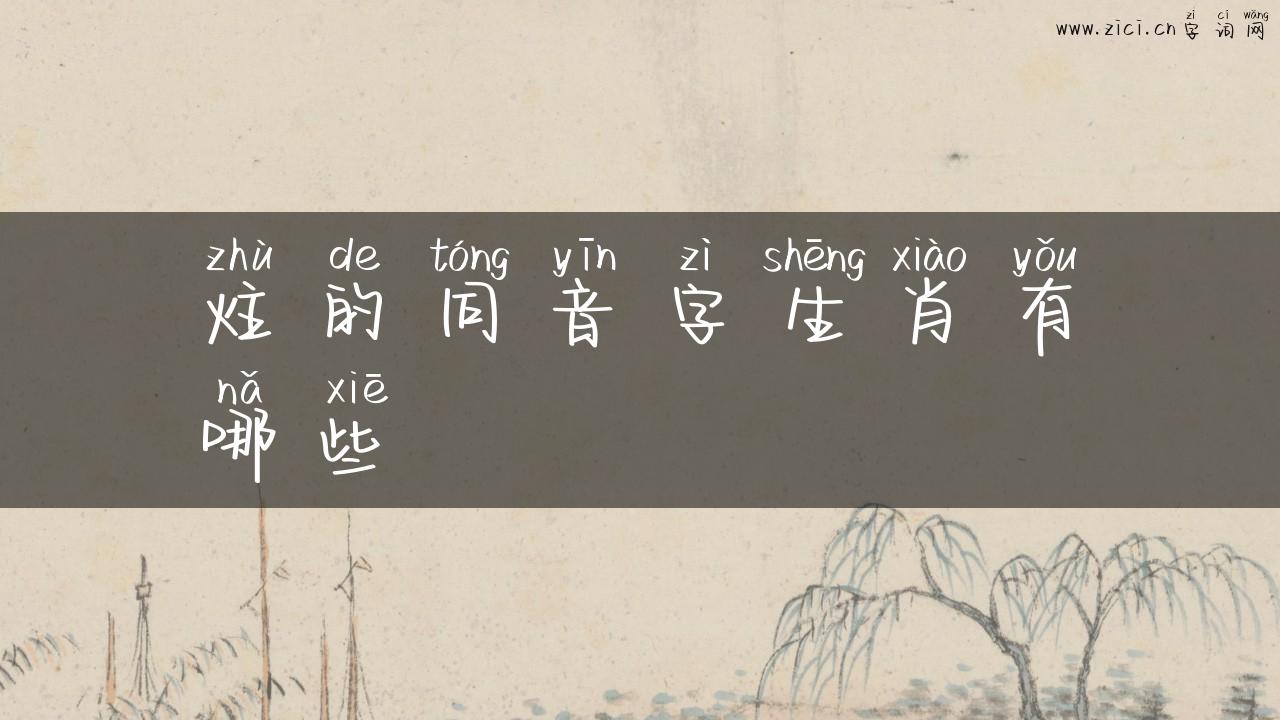 zì cí wǎng
www.zici.cn 字词网
zhù de tóng yīn zì shēng xiào yǒu
炷的同音字生肖有
nǎ xiē
哪些